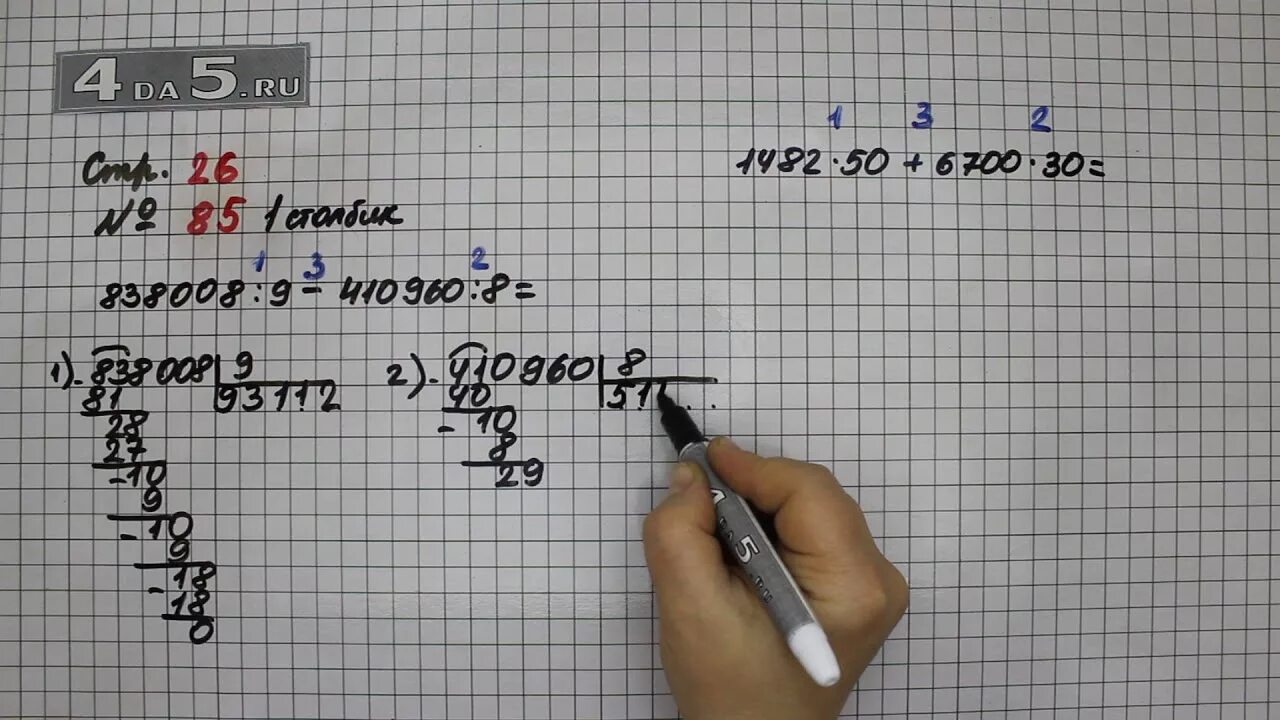 4DA5.RU
Стр. 26
№ 85 1 столбик
1 3 2
838008:9 - 410960:8=
1 3 2
1482·50 + 6700·30=
1). 838008 9
81 93112
28
27
-10
9
-10
9
-18
18
0
2). -410960 8
40 51
-10
8
29
4DA5.RU